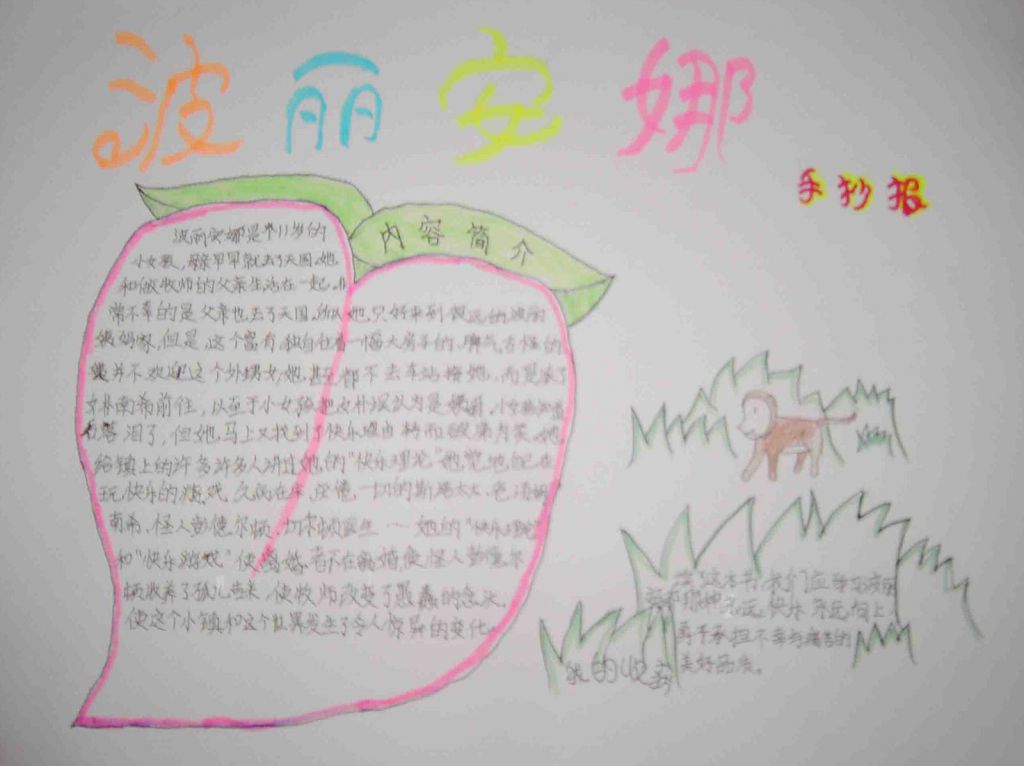 波丽安娜
手抄报
内容简介
波丽安娜是个11岁的
小女孩,母亲早早就去了天国,她
和做牧师的父亲生活在一起。非
常不幸的是父亲也去了天国,所以她,只好来到很远的波丽
姨妈家,但是,这个富有,独自住着一幢大房子的,脾气古怪的
并不欢迎这个外甥女,她,甚至都不去车站接她,而是派了
女朴南希前往,以至于小女孩把女朴误认为是姨妈,小女孩知道
落泪了,但她,马上又找到了快乐理由转而破涕为笑。她,
给镇上的许多许多人讲过她的"快乐理论"她觉地自己在
玩快乐的游戏,久病在床,一切的斯诺太太,老
南希,怪人彭德尔顿,切尔顿医生……她的"快乐理论"
和"快乐游戏"使离婚者不在离婚,使怪人彭德尔
顿收养了孤儿吉米,使牧师改变了愚蠢的念头,
使这个小镇和这个世界发生了令人惊异的变化。
读这本书,我们应学习波丽
安娜那种永远快乐 永远向上
勇于承担不幸与痛苦的
美好品质。
我的收获